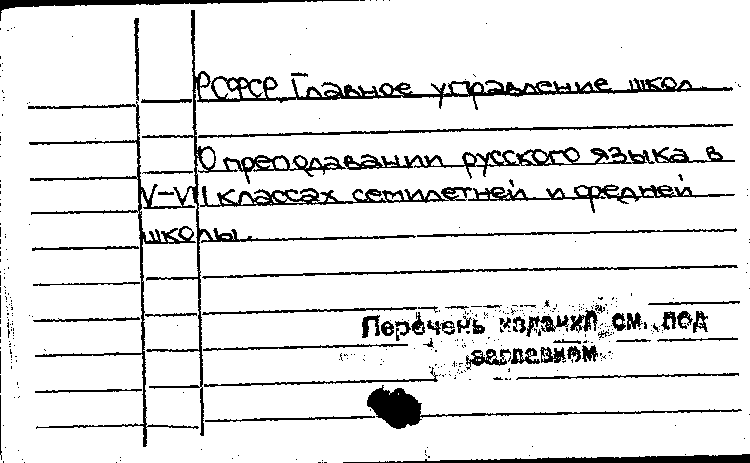 РСФСР. Главное управление школ.
О преподавании русского языка в
V-VII классах семилетней и средней
школы.
Перечень изданий см. под
заглавием